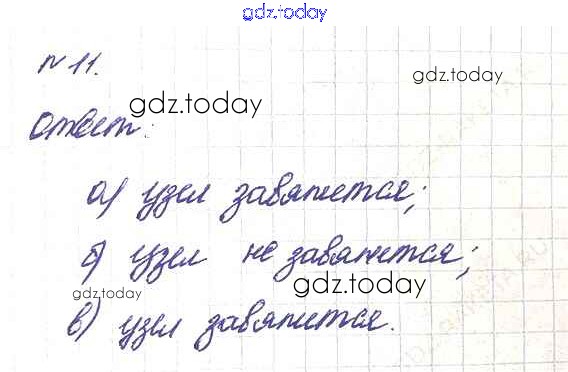 gdz.today
№ 11.
gdz.today
gdz.today
Ответ:
а) узел завяжется;
б) узел не завяжется;
gdz.today
gdz.today
в) узел завяжется.